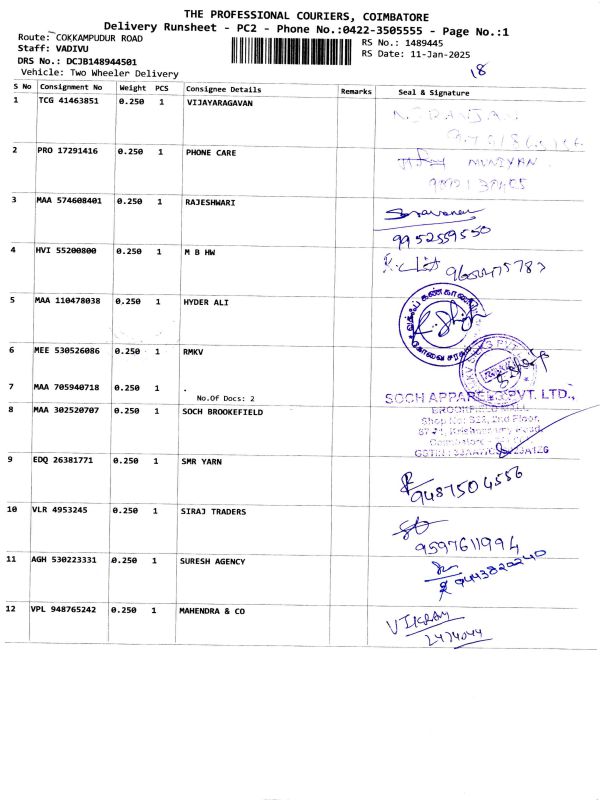 THE PROFESSIONAL COURIERS, COIMBATORE
Delivery Runsheet - PC2 - Phone No.:0422-3505555 - Page No.:1
Route: COKKAMPUDUR ROAD
RS No.: 1489445
Staff: VADIVU
RS Date: 11-Jan-2025
DRS No.: DCJB148944501
Vehicle: Two Wheeler Delivery
18
S No Consignment No Weight PCS Consignee Details Remarks Seal & Signature
1 TCG 41463851 0.250 1 VIJAYARAGAVAN
NIRANJAN
2 PRO 17291416 0.250 1 PHONE CARE
MUNIYAN
3 MAA 574608401 0.250 1 RAJESHWARI
Saravanan
9952559550
4 HVI 55200800 0.250 1 M B HW
5 MAA 110478038 0.250 1 HYDER ALI
6 MEE 530526086 0.250 1 RMKV
7 MAA 705940718 1 .
No.Of Docs: 2
SOCH APPARELS PVT. LTD.,
8 MAA 302520707 0.250 1 SOCH BROOKEFIELD
BROOKFIELD MALL
2nd Floor,
Coimbatore
9 EDQ 26381771 0.250 1 SMR YARN
9487504556
10 VLR 4953245 0.250 1 SIRAJ TRADERS
9597611994
11 AGH 530223331 0.250 1 SURESH AGENCY
9443820240
12 VPL 948765242 0.250 1 MAHENDRA & CO
VIKRAM
2474044